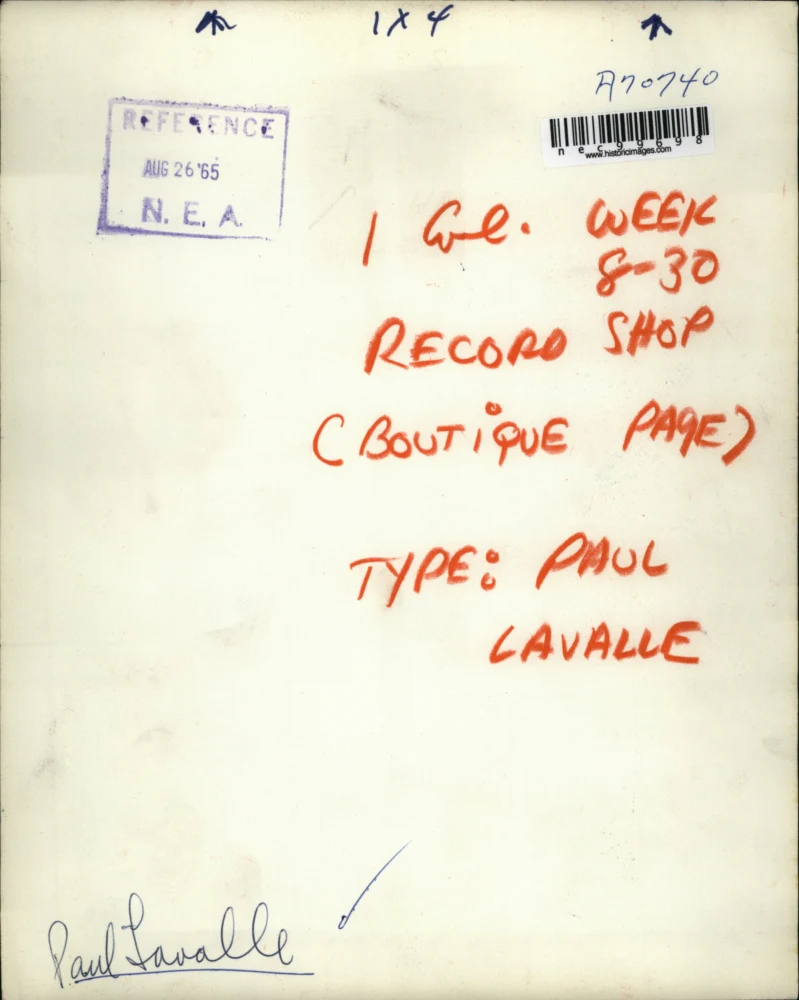 1 X 4
A70740
REFERENCE
AUG 26 '65
N. E. A.
nec99698
www.historicimages.com
1 Col. WEEK
8-30
RECORD SHOP
(BOUTIQUE PAGE)
TYPE: PAUL
LAVALLE
Paul Lavalle